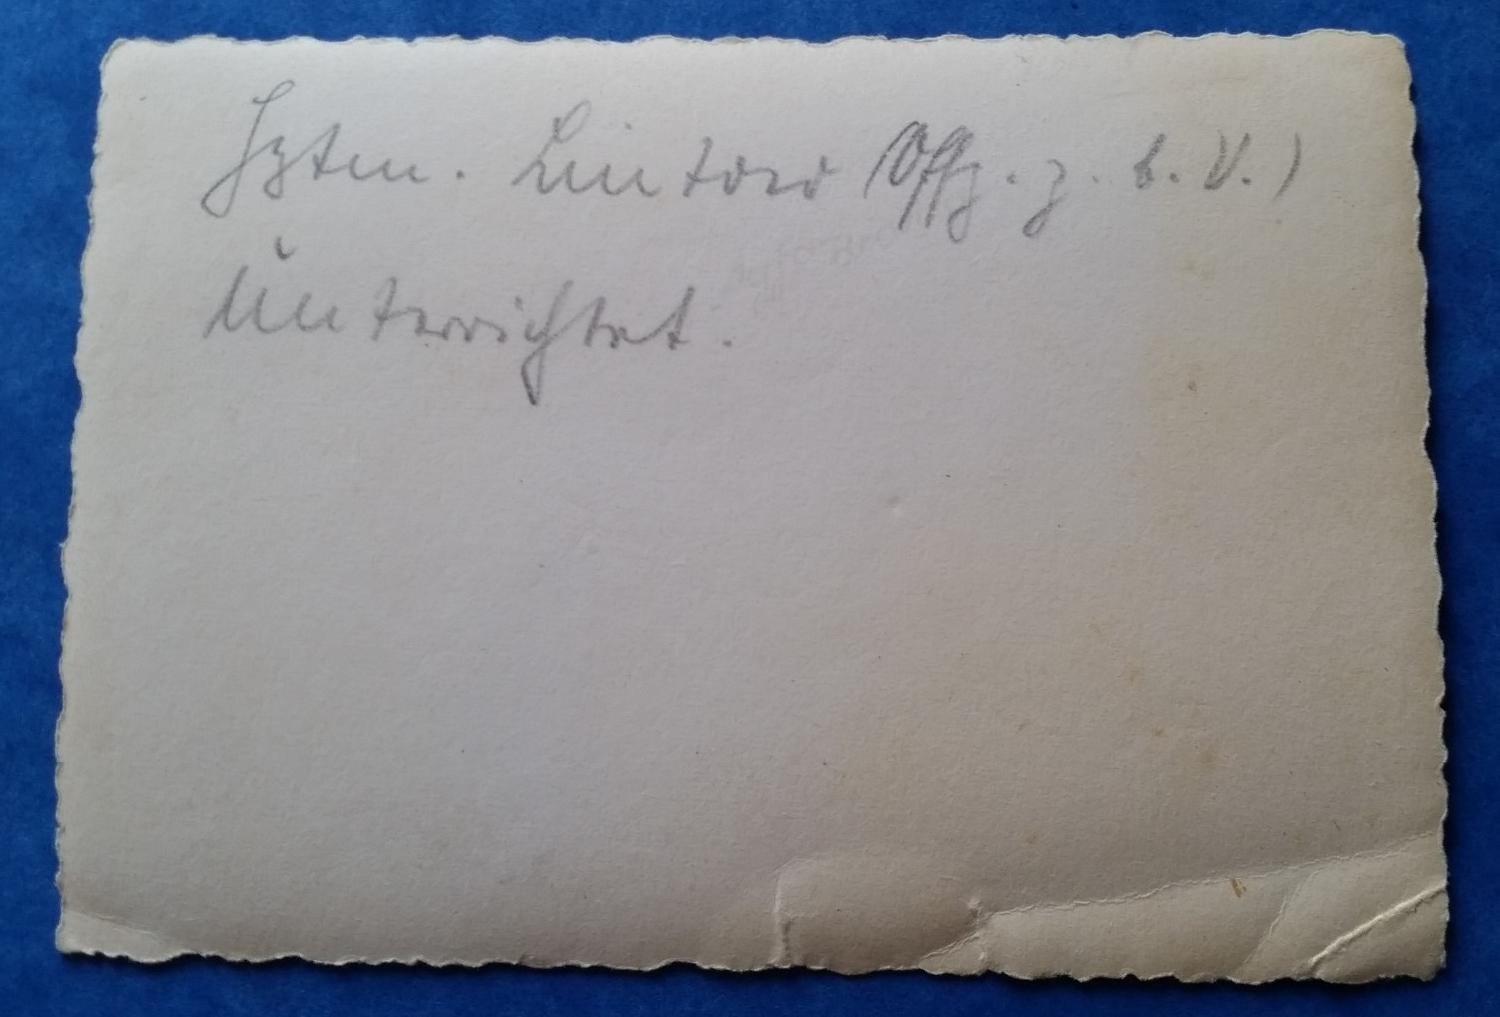 Hptm. Lintorf (Offz. z. b. V.)
Unterrichtet.